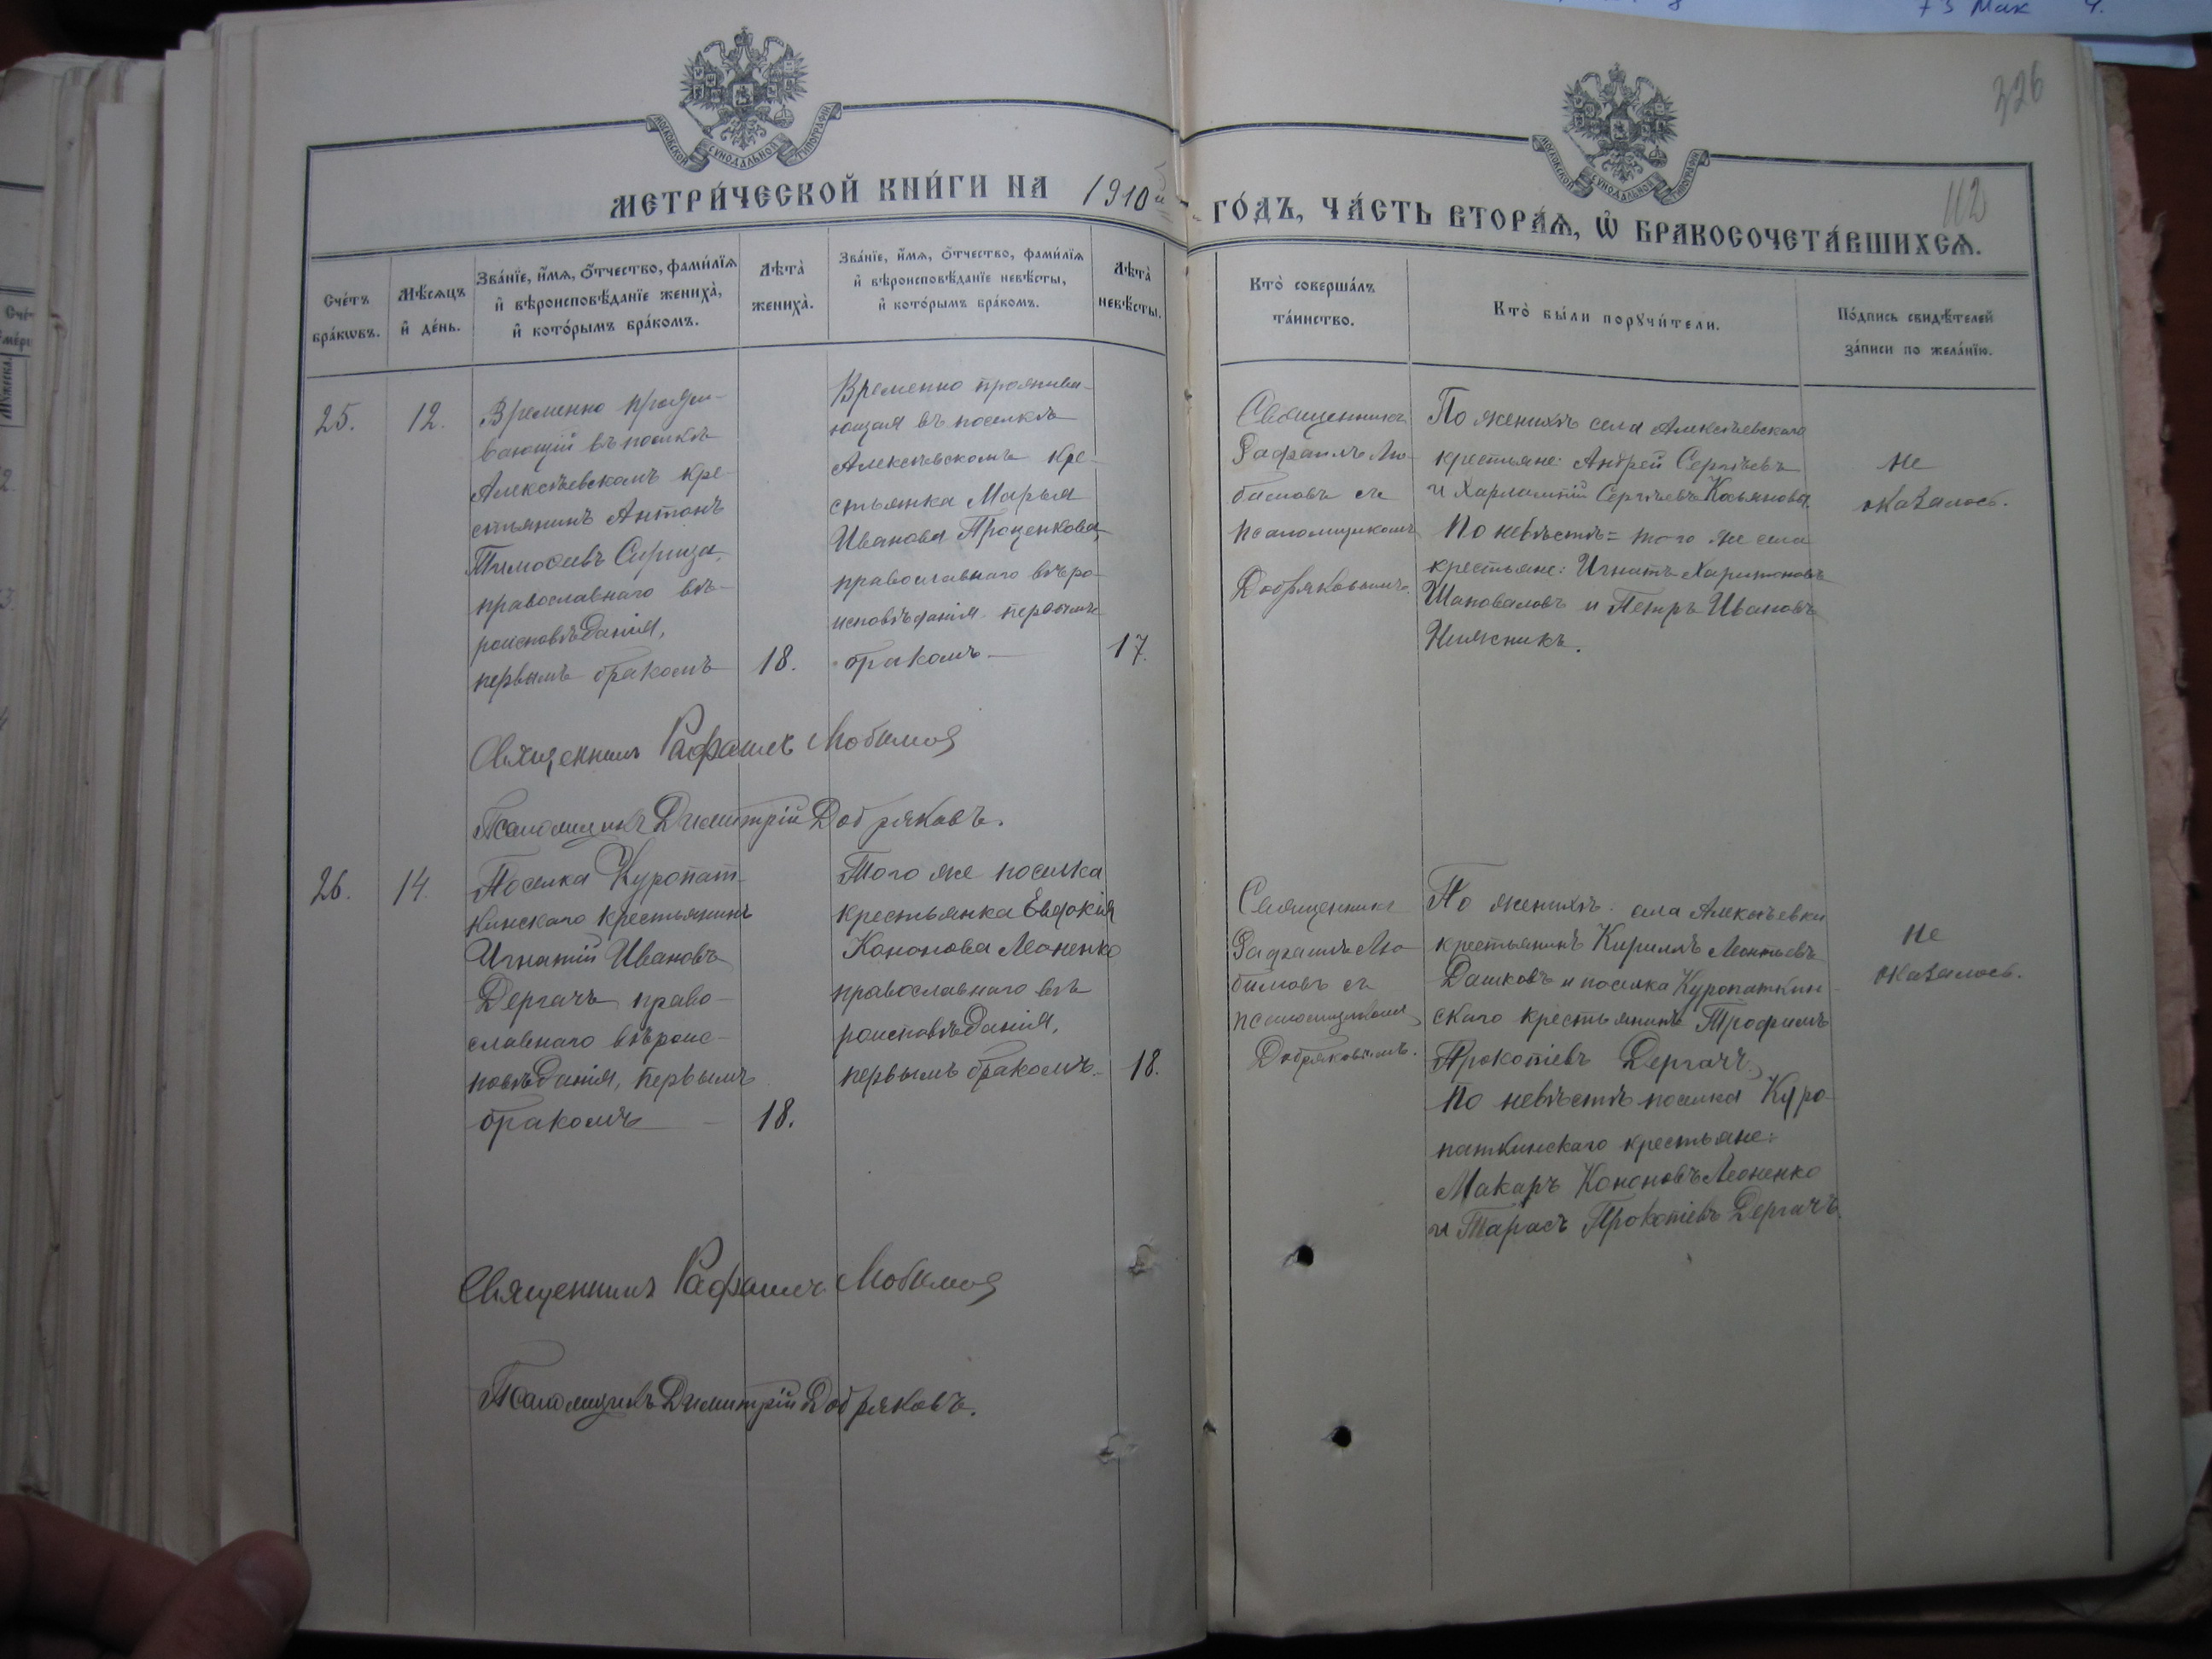 73 Мак
326
112
МОСКОВСКОЙ СѴНОДАЛЬНОЙ ТИПОГРАФІИ
МОСКОВСКОЙ СѴНОДАЛЬНОЙ ТИПОГРАФІИ
МЕТРИ́ЧЕСКОЙ КНИ́ГИ НА 1910й ГО́ДЪ, ЧА́СТЬ ВТОРА́Ѧ, Ѽ БРАКОСОЧЕТА́ВШИХСѦ.
Сче́тъ
бра́кѡвъ.
Мѣ́сѧцъ
и҆ де́нь.
Зва́нїе, и҆́мѧ, ѻ҆́тчество, фами́лїѧ
и҆ вѣроисповѣ́данїе жениха̀,
и҆ кото́рымъ бра́комъ.
Лѣта̀
жениха̀.
Зва́нїе, и҆́мѧ, ѻ҆́тчество, фами́лїѧ
и҆ вѣроисповѣ́данїе невѣ́сты,
и҆ кото́рымъ бра́комъ.
Лѣта̀
невѣ́сты.
Кто̀ соверша́лъ
та́инство.
Кто̀ бы́ли порꙋчи́тели.
По́дпись свидѣ́телей
за́писи по жела́нїю.
25.
12.
Временно прожи-
вающій въ поселкѣ
Алексѣевскомъ кре-
стьянинъ Антонъ
Тимоѳеевъ
православнаго вѣ-
роисповѣданія,
первымъ бракомъ
18.
Временно прожива-
ющая въ поселкѣ
Алексѣевскомъ кре-
стьянка Марья
Иванова Проценкова,
православнаго вѣро-
исповѣданія первымъ
бракомъ
17.
Священникъ
Рафаилъ Лю-
бимовъ съ
псаломщикомъ
Добряковымъ.
По женихѣ села Алексѣевскаго
крестьяне: Андрей Сергѣевъ
и Харлампій Сергѣевъ Касьяновы.
По невѣстѣ = того же села
крестьяне: Игнатъ Харитоновъ
Шаповаловъ и Петръ Ивановъ
Не
оказалось.
Священникъ Рафаилъ Любимовъ
Псаломщикъ Димитрій Добряковъ.
26.
14.
Поселка Куропат-
кинскаго крестьянинъ
Игнатій Ивановъ
Дергачъ право-
славнаго вѣроис-
повѣданія, первымъ
бракомъ
18.
Того же поселка
крестьянка Евдокія
Кононова Леоненко
православнаго вѣ
роисповѣданія,
первымъ бракомъ.
18.
Священникъ
Рафаилъ Лю-
бимовъ съ
псаломщикомъ
Добряковымъ.
По женихѣ: села Алексѣевки
крестьянинъ Кириллъ Леонтьевъ
Дашковъ и поселка Куропаткин-
скаго крестьянинъ Трофимъ
Прокопіевъ Дергачъ.
По невѣстѣ поселка Куро-
паткинскаго крестьяне:
Макаръ Кононовъ Леоненко
и Тарасъ Прокопіевъ Дергачъ.
Не
оказалось.
Священникъ Рафаилъ Любимовъ
Псаломщикъ Димитрій Добряковъ.